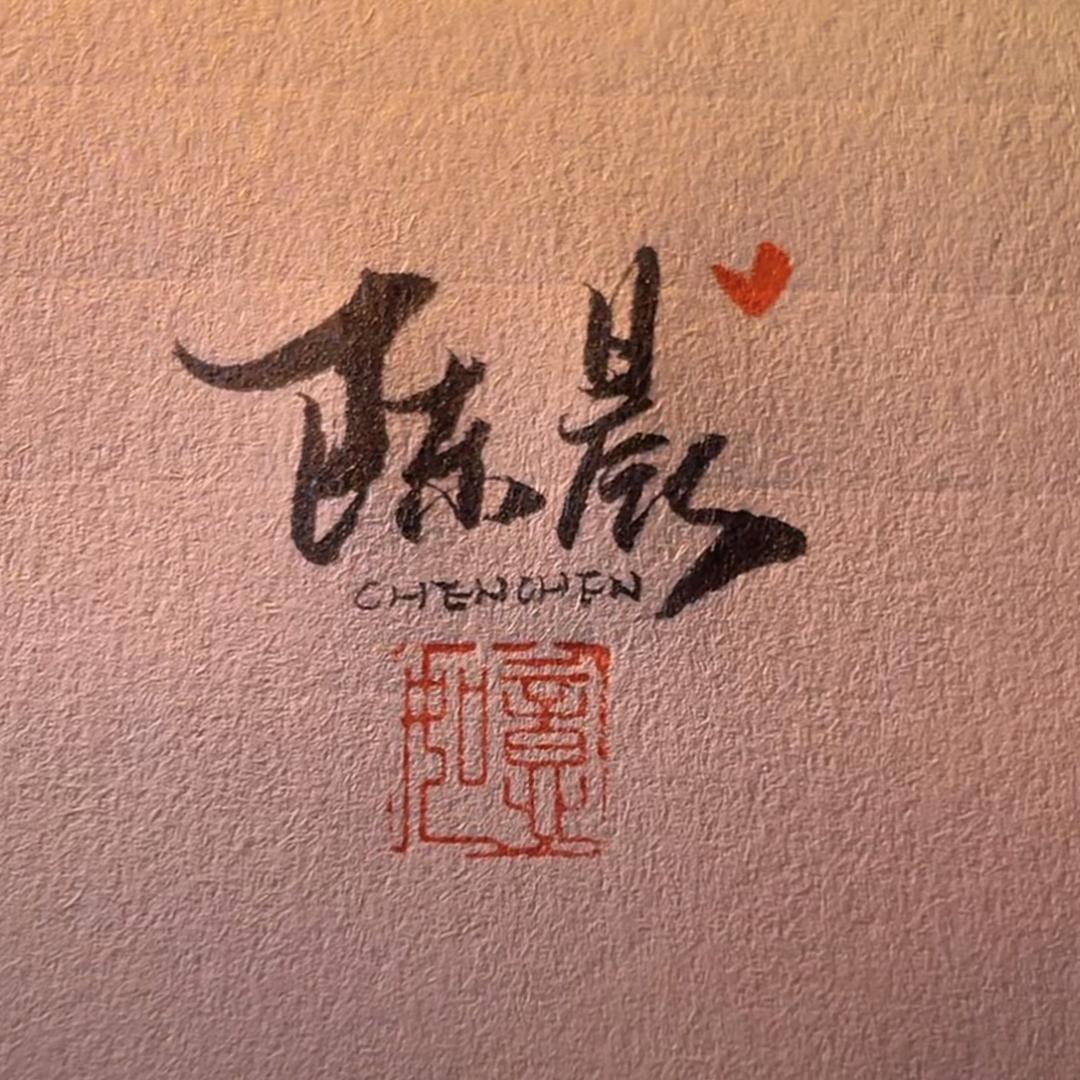 陈晨
CHENCHEN